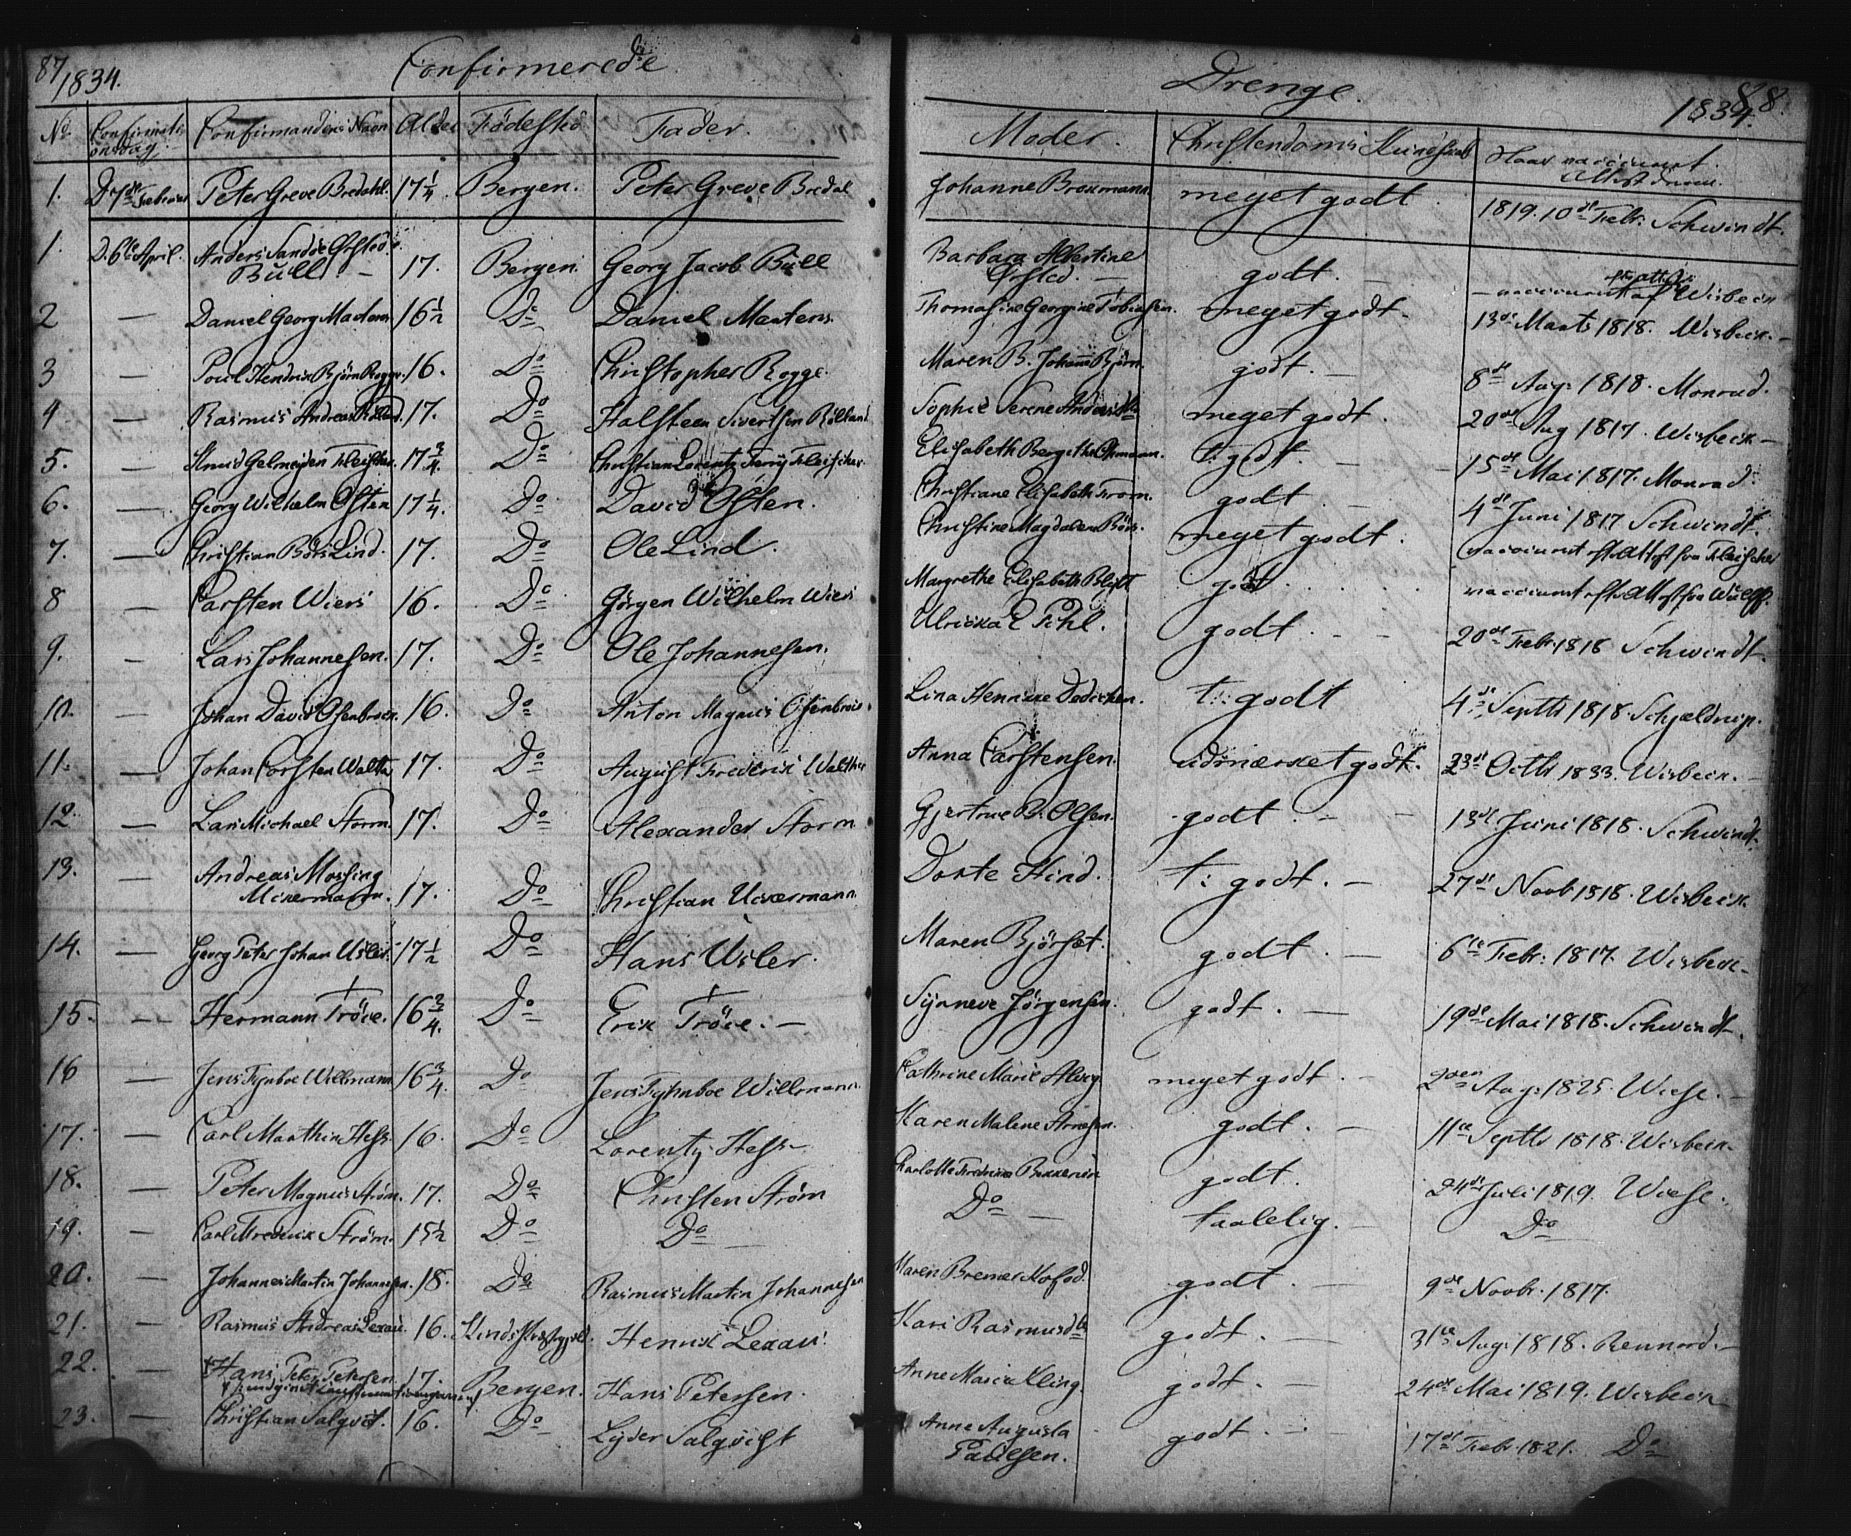 87/1834. Confirmerede
Drenge. 88.
1834.
No Confirmations dag Confirmandens Navn Alder Fødested Fader. Moder. Christendoms Kundskab Naar vaccineret. Attest derom.
1. D. 7de Februar Peter Greve Bredahl. 17 1/4 Bergen. Peter Greve Bredal Johanne Broxmann meget godt 1819. 10de Febr. Schwindt.
1. D. 6te April. Anders Sandøe Ørsted Bull — 17. Bergen. Georg Jacob Bull Barbara Albertine Ørsted. — godt. — vaccineret af Wisbech
2 — Daniel Georg Martens 16 1/2 Do Daniel Martens. Thomasine Georgine Tobiesen. meget godt. 13de Marts 1818. Wisbech. —
3 — Poul Hendrik Bjørn Rogge. 16. Do Christopher Rogge. Maren B. Johanne Bjørn. godt. — 8de Aug: 1818. Monrad.
4 — Rasmus Andreas 17. Do Halsteen Sivertsen Sophie Serene meget godt. 20de Aug 1817. Wisbech —
5. — Knud Gelmeyden Fleischer. 17 3/4. Do Christian Lorentz Ferry Fleischer. Elisabeth Bergithe t: godt. — 15de Mai 1817. Monrad.
6. — Georg Wilhelm Osten 17 1/4. Do David Osten. Christiane Elisabeth From. godt. — 4de Juni 1817 Schwindt.
7. — Christian Bøis Lind. 17. Do Ole Lind. Christine Magdalena Bøis. meget godt. vaccineret efter Attest fra Fleischer
8 — Carsten Wiers 16. Do Jørgen Wilhelm Wiers Margrethe Elisabeth godt. vaccineret efter Attest fra Wulff.
9. — Lars Johannesen. 17. Do Ole Johannesen. Ulricka E Pihl. godt. — 20de Febr 1818 Schwindt.
10. — Johan David Osenbroch. 16. Do Anton Magnus Osenbroch. Lina Henricke Dedichen. t: godt 4de Septbr 1818. Schjældrup.
11. — Johan Carsten Walther 17. Do August Frederik Walther Anna Carstensen. udmærket godt. 23de Octbr 1833. Wisbech. —
12. — Lars Michael Storm. 17. Do Alexander Storm Gjertrue D. Olsen. godt. — 13de Juni 1818. Schwindt.
13. — Andreas Mossing Uckermann. 17. Do Christian Uckermann Dorte Hind. t: godt. — 27de Novb 1818. Wisbech.
14. — Georg Peter Johan Usler. 17 1/2 Do Hans Usler. Maren Bjørset. godt. — 6te Febr: 1817. Wisbech —
15. — Hermann Tröie. 16 3/4. Do Erik Tröie. — Synneve Jørgensen. godt. — 19de Mai 1818. Schwindt.
16 — Jens Fynboe Willmann 16 3/4. Do Jens Fyhnboe Willmann. Cathrine Marie Alvey. meget godt. — 2den Aug: 1825. Wiese. —
17. — Carl Marthin Hess. 16. Do Lorentz Hess — Karen Malene Arnesen. godt. — 11te Septbr 1818. Wisbech.
18. — Peter Magnus Strøm. 17. Do Christen Strøm Charlotte Fredrica godt. 24de Juli 1819. Wiese.
19. — Carl Fredrick Strøm. 15 1/2 Do Do Do — taalelig. — Do
20. — Johannes Martin Johannesen. 18. Do Rasmus Martin Johannesen Maren Bremer godt. — 9de Novbr. 1817.
21. — Rasmus Andreas Lexau. 16. Henrik Lexau. Kari Rasmusdtr godt. — 31te Aug: 1818. Rennord. —
22. — Hans Peter Petersen. 17. Bergen. Hans Petersen. Anne Maria Kling. godt. — 24de Mai 1819. Wisbech
23. — Christian Salqvist. 16. Do Lyder Salqvist Anne Augusta Paulsen. godt. — 17de Febr. 1821. Do